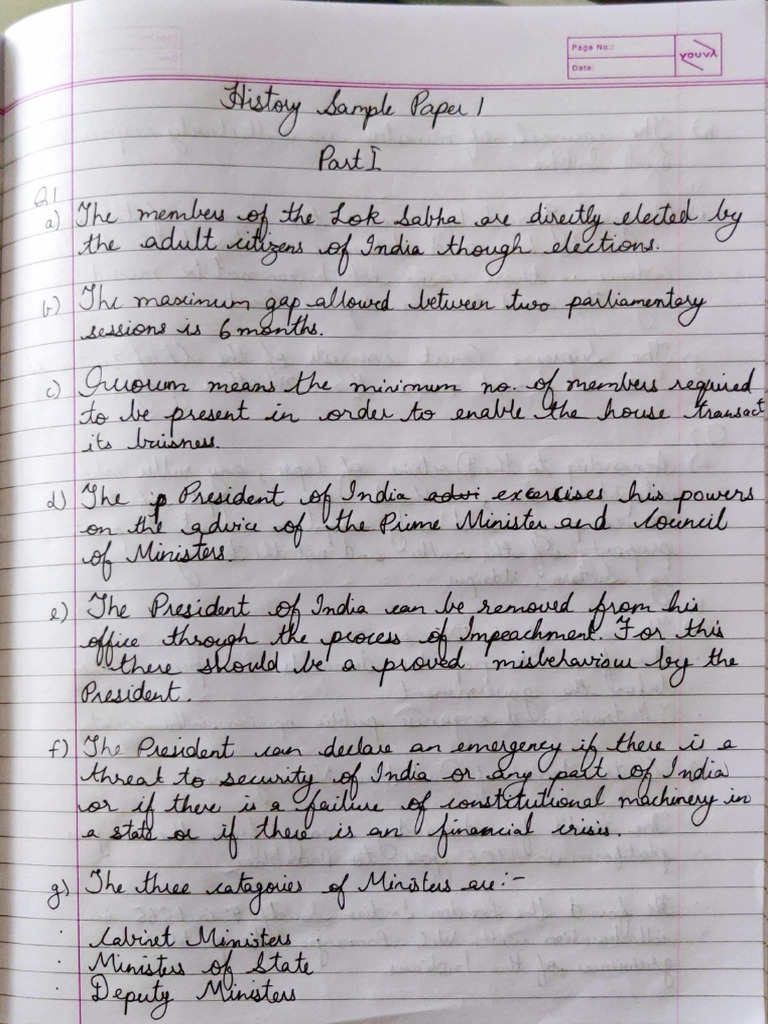 Page No.:
Date:
YOUVA
History Sample Paper 1
Part I
Q1
a) The members of the Lok Sabha are directly elected by
the adult citizens of India though elections.
b) The maximum gap allowed between two parliamentary
sessions is 6 months.
c) Quorum means the minimum no. of members required
to be present in order to enable the house transact
its buisness.
d) The p President of India advi excercises his powers
on the advice of the Prime Minister and Council
of Ministers.
e) The President of India can be removed from his
office through the process of Impeachment. For this
there should be a proved misbehaviour by the
President.
f) The President can declare an emergency if there is a
threat to security of India or any part of India
or if there is a failure of constitutional machinery in
a state or if there is an financial crisis.
g) The three catagories of Ministers are:-
· Cabinet Ministers
· Ministers of State
· Deputy Ministers